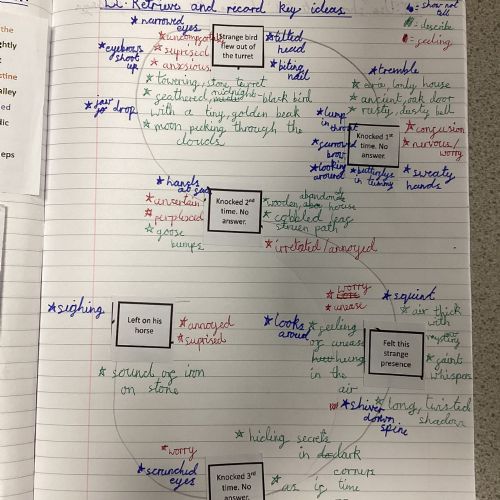 LI: Retrieve and record key ideas.
* = show not tell
* = describe
* = feeling
* narrowed eyes
* uncomfortable
* suprised
* anxious
* eyebrows shoot up
* jaw drop
Strange bird flew out of the turret
* tilted head
* biting nail
* towering, stone turret
* feathered, midnight-black bird
with a tiny, golden beak
* moon peeking through the
clouds
* tremble
* eira, lonly house
* ancient, oak door
* rusty, dusty bell
* lump in throat
* furrowed brow
* looking around
* butterflys in tummy
Knocked 1st time. No answer.
* confusion
* nervous/worry
* sweaty hands
* hands
* uncertain
* perplexed
* goose bumps
Knocked 2nd time. No answer.
* wooden, abandoned house
* cobbled, leaf strewn path
* irritated/annoyed
* sighing
Left on his horse
* annoyed
* suprised
* sound of iron
on stone
* worry
* unease
* looks around
* feeling
of unease
hung
in the
air
* squint
* air thick
with
mystery
* faint
whispers
Felt this strange presence
* shiver down spine
* long, twisted
shadows
* hiding secrets
in dark
corners
* as if time
* worry
* scrunched eyes
Knocked 3rd time. No answer.
the
htly
t
stine
alley
ed
dic
eps